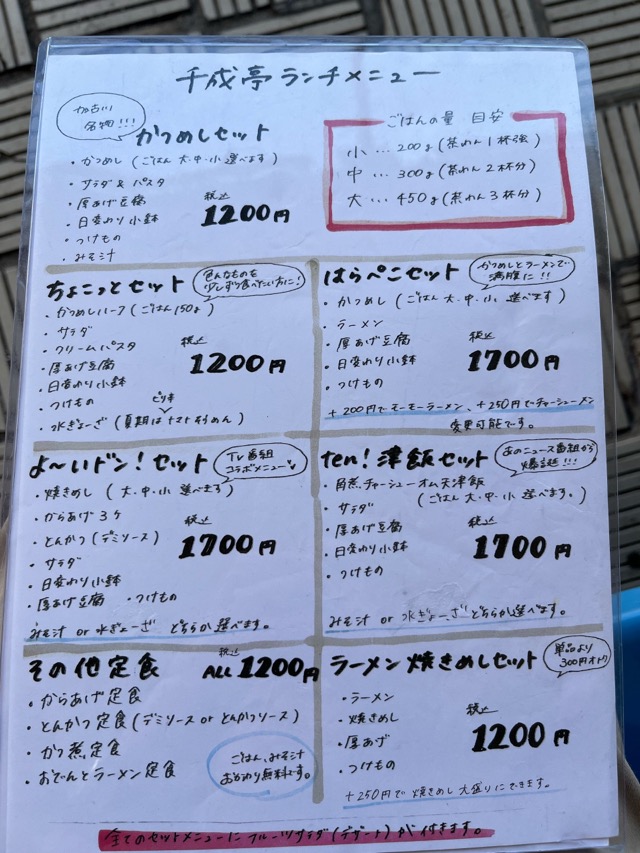 千成亭ランチメニュー
加古川
名物!!!
かつめしセット
・かつめし (ごはん 大・中・小 選べます)
・サラダ&パスタ
・厚あげ豆腐
・日変わり小鉢
・つけもの
・みそ汁
税込
1200円
ごはんの量 目安
小…200g(茶わん1杯強)
中…300g(茶わん2杯分)
大…450g(茶わん3杯分)
ちょこっとセット
色んなものを
少しずつ食べたい方に!
・かつめしハーフ(ごはん150g)
・サラダ
・クリームパスタ
・厚あげ豆腐
・日変わり小鉢
・つけもの
ピリ辛
・水ぎょーざ (夏期はトマトそうめん)
税込
1200円
はらぺこセット
かつめしとラーメンで
満腹に!!
・かつめし (ごはん 大・中・小 選べます)
・ラーメン
・厚あげ豆腐
・日変わり小鉢
・つけもの
税込
1700円
+200円でモーモーラーメン、+250円でチャーシューメン
変更可能です。
よ〜いドン!セット
TV番組
コラボメニュー
・焼きめし (大・中・小 選べます)
・からあげ3ケ
・とんかつ(デミソース)
・サラダ
・日変わり小鉢
・厚あげ豆腐 ・つけもの
税込
1700円
みそ汁 or 水ぎょーざ どちらか選べます。
ten!津飯セット
あのニュース番組から
爆誕!!!
・角煮チャーシューオム天津飯
(ごはん 大・中・小 選べます。)
・サラダ
・厚あげ豆腐
・日変わり小鉢
・つけもの
税込
1700円
みそ汁 or 水ぎょーざ どちらか選べます。
その他定食
税込
ALL 1200円
・からあげ定食
・とんかつ定食(デミソース or とんかつソース)
・かつ煮定食
・おでんとラーメン定食
ごはん、みそ汁
おかわり無料です。
ラーメン焼きめしセット
単品より
300円オトク
・ラーメン
・焼きめし
・厚あげ
・つけもの
税込
1200円
+250円で焼きめし大盛りにできます。
全てのセットメニューにフルーツサラダ(デザート)が付きます。